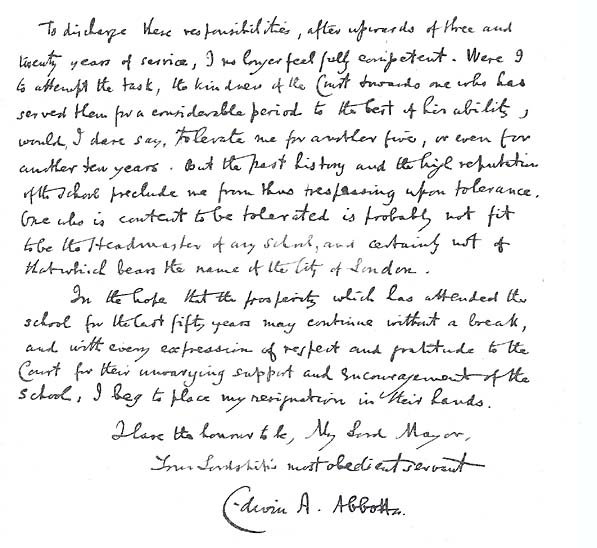 To discharge these responsibilities, after upwards of three and
twenty years of service, I no longer feel fully competent. Were I
to attempt the task, the kindness of the Court towards one who has
served them for a considerable period to the best of his ability,
would, I dare say, tolerate me for another five, or even for
another ten years. But the past history and the high reputation
of the School preclude me from thus trespassing upon tolerance.
One who is content to be tolerated is probably not fit
to be the Headmaster of any school, and certainly not of
that which bears the name of the City of London.
In the hope that the prosperity which has attended the
school for the last fifty years may continue without a break,
and with every expression of respect and gratitude to the
Court for their unvarying support and encouragement of the
School, I beg to place my resignation in their hands.
I have the honour to be, My Lord Mayor,
Your Lordship's most obedient servant
Edwin A. Abbott.